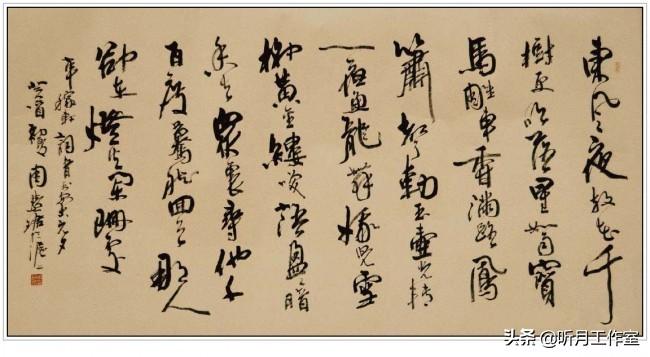 東風夜放花千
樹更吹落星如雨寶
馬雕車香滿路鳳
簫聲動玉壺光轉
一夜魚龍舞蛾兒雪
柳黃金縷笑語盈盈暗
香去衆裏尋他千
百度驀然回首那人
卻在燈火闌珊處
辛稼軒詞青玉案元夕
癸酉初夏周慧珺於滬
头条 @听月工作室